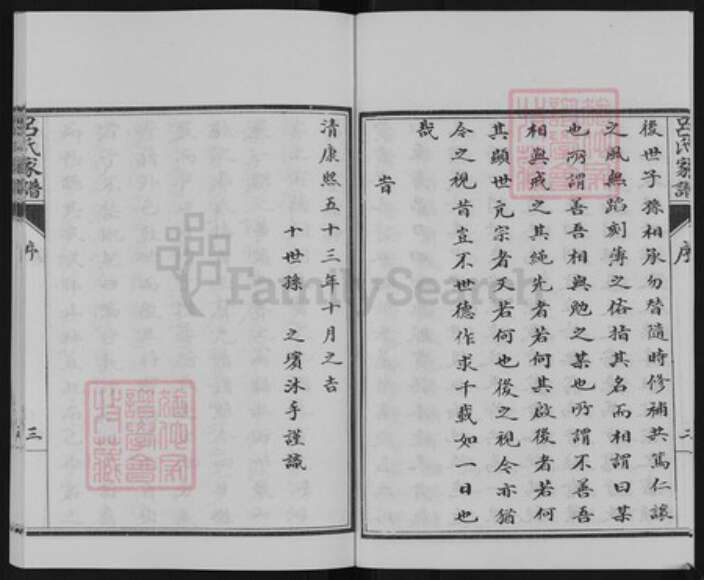 呂氏家譜
序
二
後世子孫相承勿替隨時修補共篤仁讓
之風無蹈刻薄之俗指其名而相謂曰某
也所謂善吾相與勉之某也所謂不善吾
相與戒之其繩先者若何其啟後者若何
其顯世亢宗者又若何也後之視今亦猶
今之視昔豈不世德作求千載如一日也
哉
旹
清康熙五十三年十月之吉
十世孫 之璸沐手謹識
呂氏家譜
序
三
FamilySearch